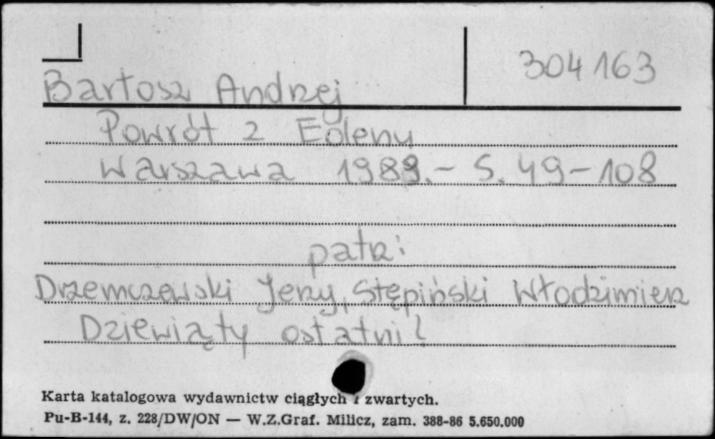 304 163
Bartosz Andrzej
Powrót z Edenu
Warszawa 1989.- S. 49-108
patrz:
Drzemczewski Jerzy, Stępiński Włodzimierz
Dziewiąty ostatni!
Karta katalogowa wydawnictw ciągłych i zwartych.
Pu-B-144, z. 228/DW/ON — W.Z.Graf. Milicz, zam. 388-86 5.650.000